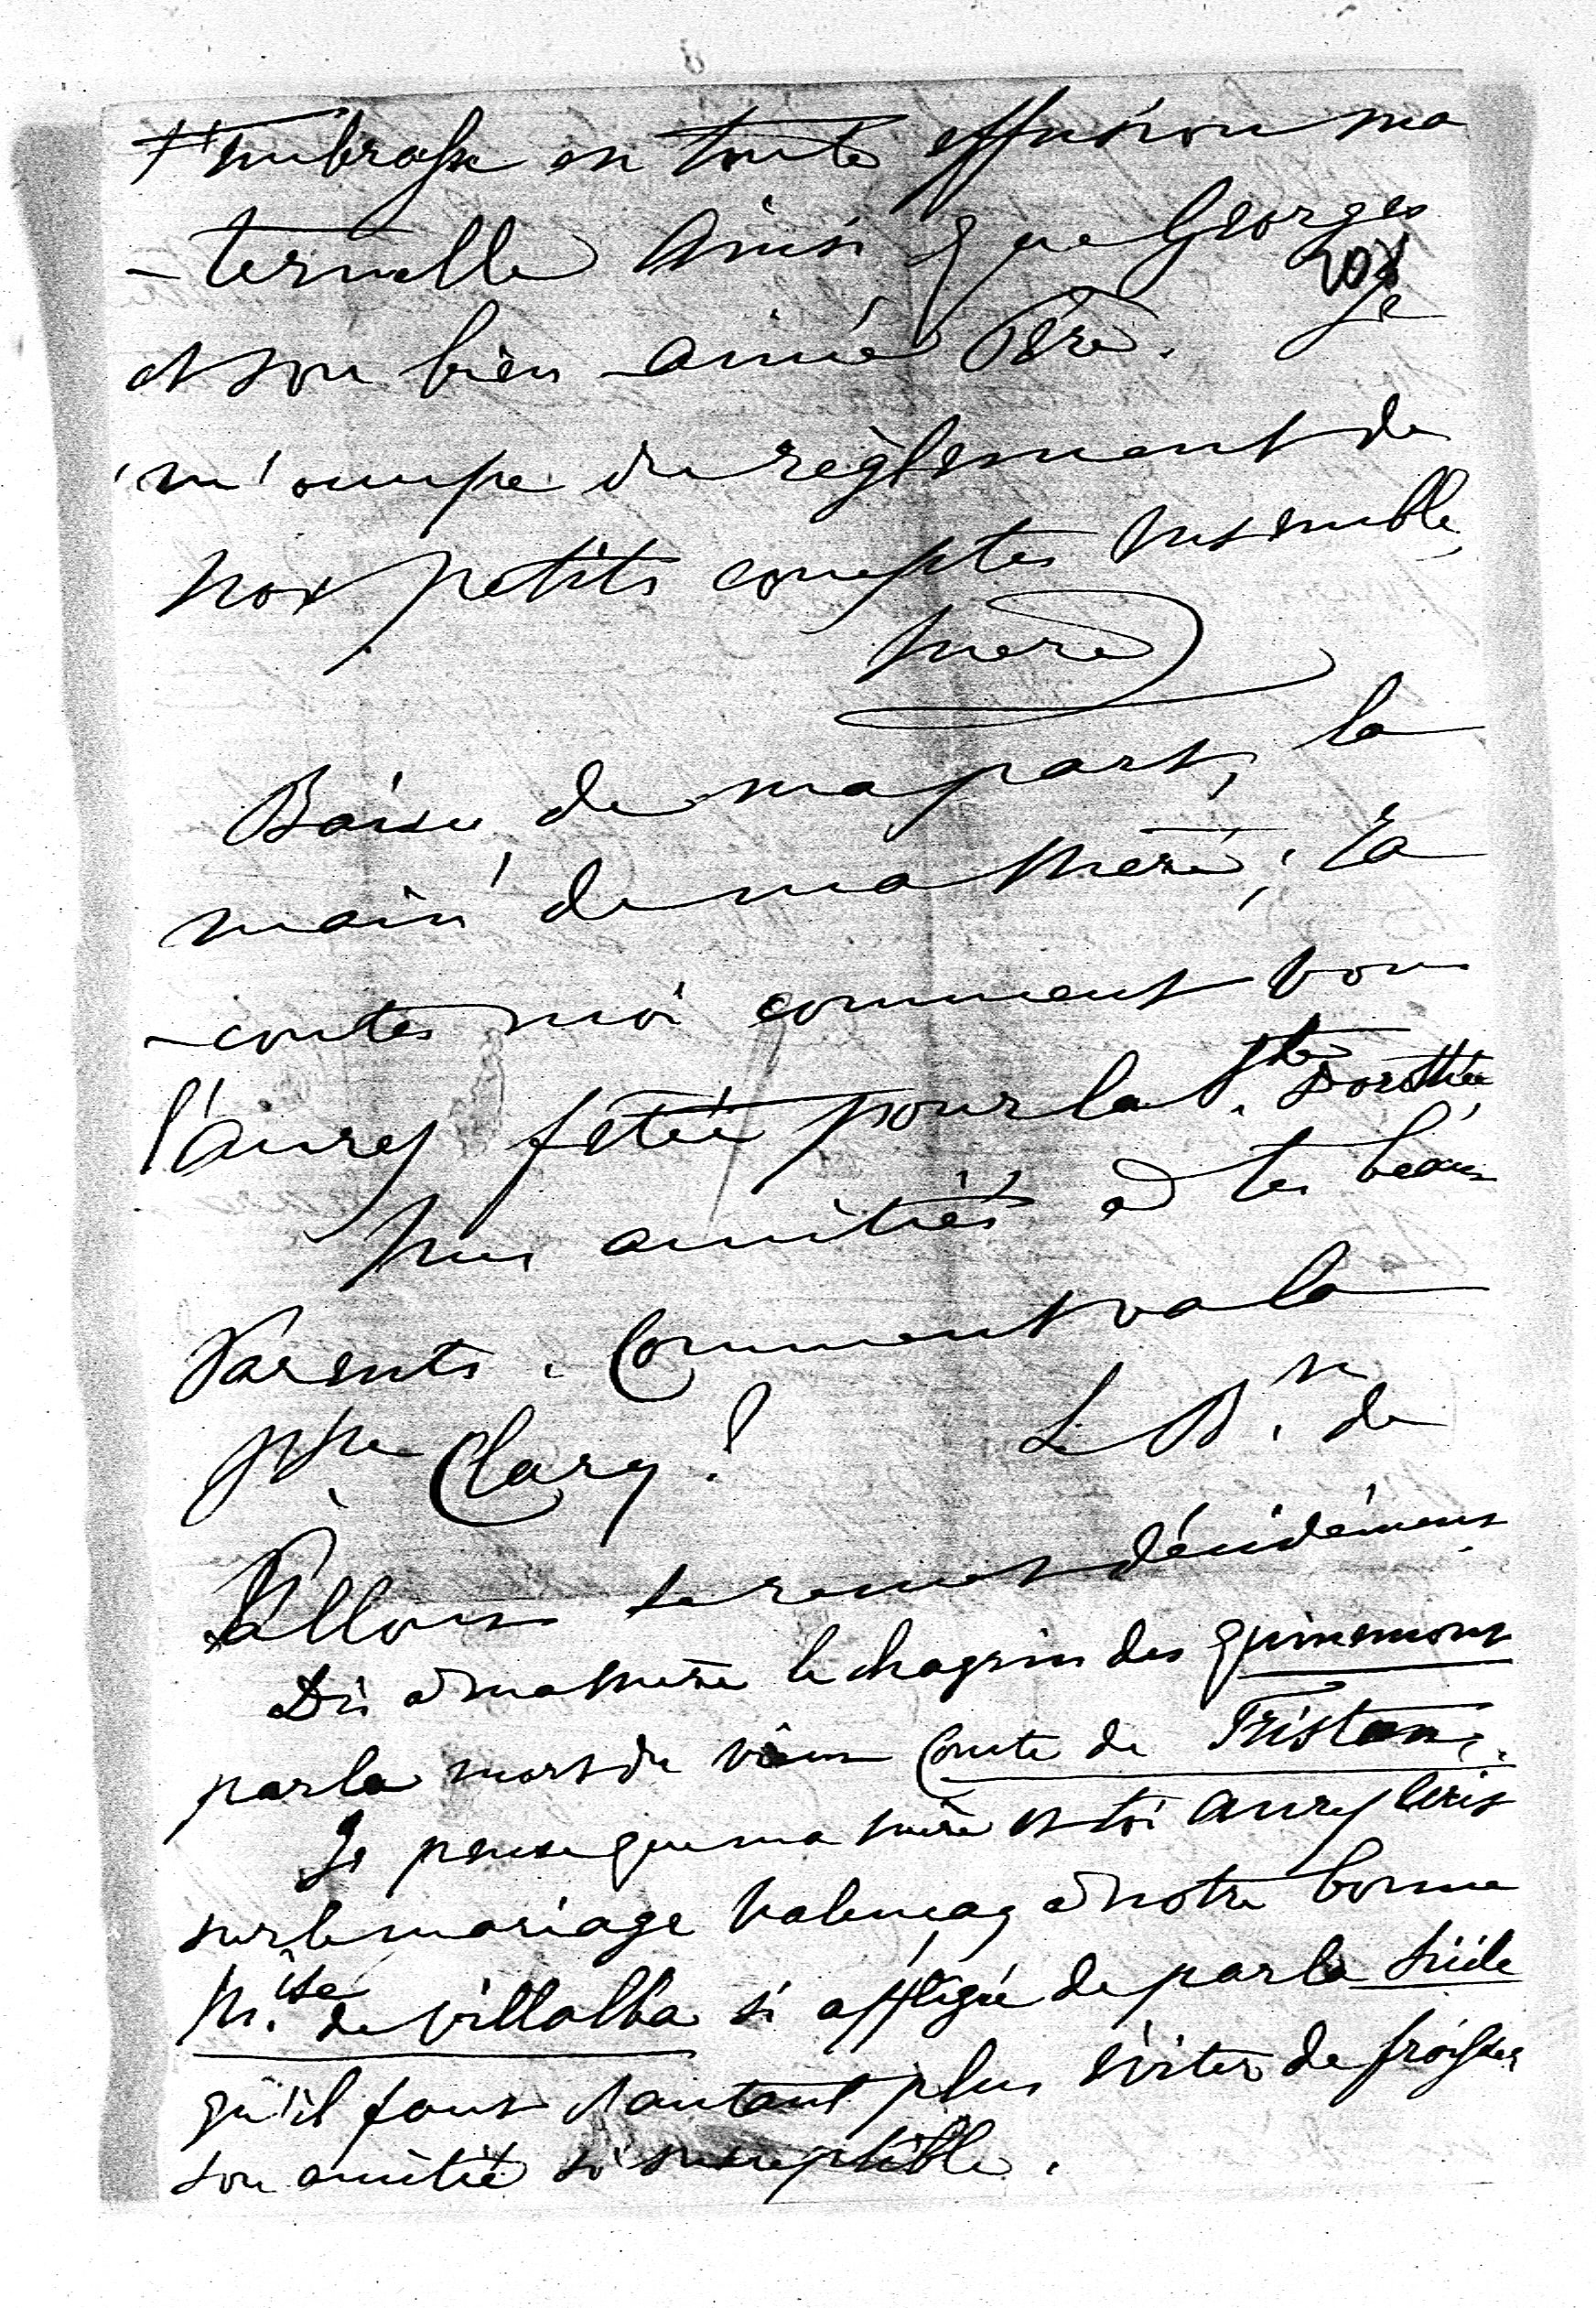 t'embrasse en toute effusion ma
-ternelle ainsi que Georges
208
et son bien aimé Père. Je
m'occupe du règlement de
nos petits comptes ensemble,
mère
Baise, de ma part, la
main de ma Mère; ra
-contes moi comment vous
l'aurez fêtée pour la Ste Dorothée
Mes amitiés à tes beaux
Parents. Comment va la
psse Clary? Le Bn. de
se remet décidément
Dis à ma mère le chagrin des
par la mort du vieux Comte de Tristan.
Je pense que ma mère et toi aurez écrit
sur le mariage Valençay à notre bonne
M.ise de Villalba si affligée de par la
qu'il faut d'autant plus éviter de froisser
son amitié si susceptible.